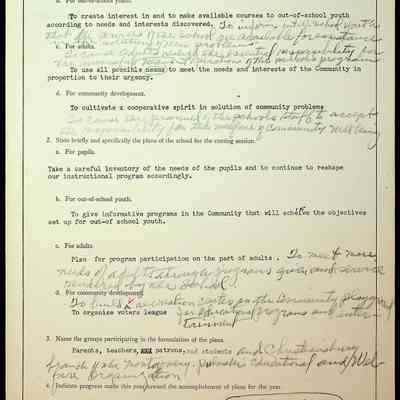 b. For out-of-school youth.
To create interest in and to make available courses to out-of-school youth
according to needs and interests discovered. To inform out of school youths
that the services of the school are available for assistance
in the solution of their problems.
c. For adults.
To use all possible means to meet the needs and interests of the Community in
proportion to their urgency.
d. For community development.
To cultivate a cooperative spirit in solution of community problems
To cause the personnel of the schools staff to accept
the responsibility for the welfare of Community Well being
2. State briefly and specifically the plans of the school for the coming session:
a. For pupils.
Take a careful inventory of the needs of the pupils and to continue to reshape
our instructional program accordingly.
b. For out-of-school youth.
To give informative programs in the Community that will acheive the objectives
set up for out-of school youth.
c. For adults.
Plan for program participation on the part of adults. To meet more
needs of adults through programs given and service
rendered by the School.
d. For community development.
To build recreation center on the Community playground
To organize voters league for educational programs and enter-
tainment
3. Name the groups participating in the formulation of the plans.
Parents, teachers, xxx patrons, and students and Christiansburg
branch of the Montgomery, Pulaski Educational and Wel-
fare Organization
4. Indicate progress made this year toward the accomplishment of plans for the year.